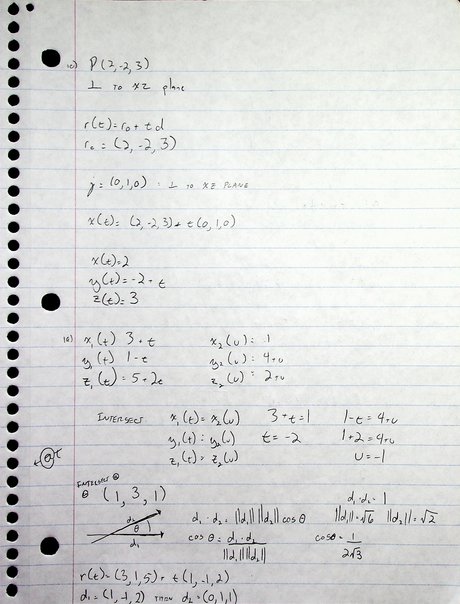 10) P(2,-2,3)
⊥ TO XZ plane
r(t)=r₀+td
r₀=(2,-2,3)
j=(0,1,0) : ⊥ TO XZ PLANE
r(t)=(2,-2,3)+t(0,1,0)
x(t)=2
y(t)=-2+t
z(t)=3
x₁(t) 3+t x₂(u)=1
y₁(t) 1-t y₂(u)=4+u
z₁(t)=5+2t z₂(u)=2+u
INTERSECT x₁(t)=x₂(u) 3+t=1 1-t=4+u
y₁(t)=y₂(u) t=-2 1+2=4+u
z₁(t)=z₂(u) u=-1
INTERSECT @
(1,3,1) d₁·d₂=1
d₂ θ d₁
d₁·d₂=||d₁|| ||d₂|| cosθ ||d₁||=√6 ||d₂||=√2
cosθ=d₁·d₂/||d₁|| ||d₂|| cosθ=1/2√3
r(t)=(3,1,5)+t(1,-1,2)
d₁=(1,-1,2) THEN d₂=(0,1,1)